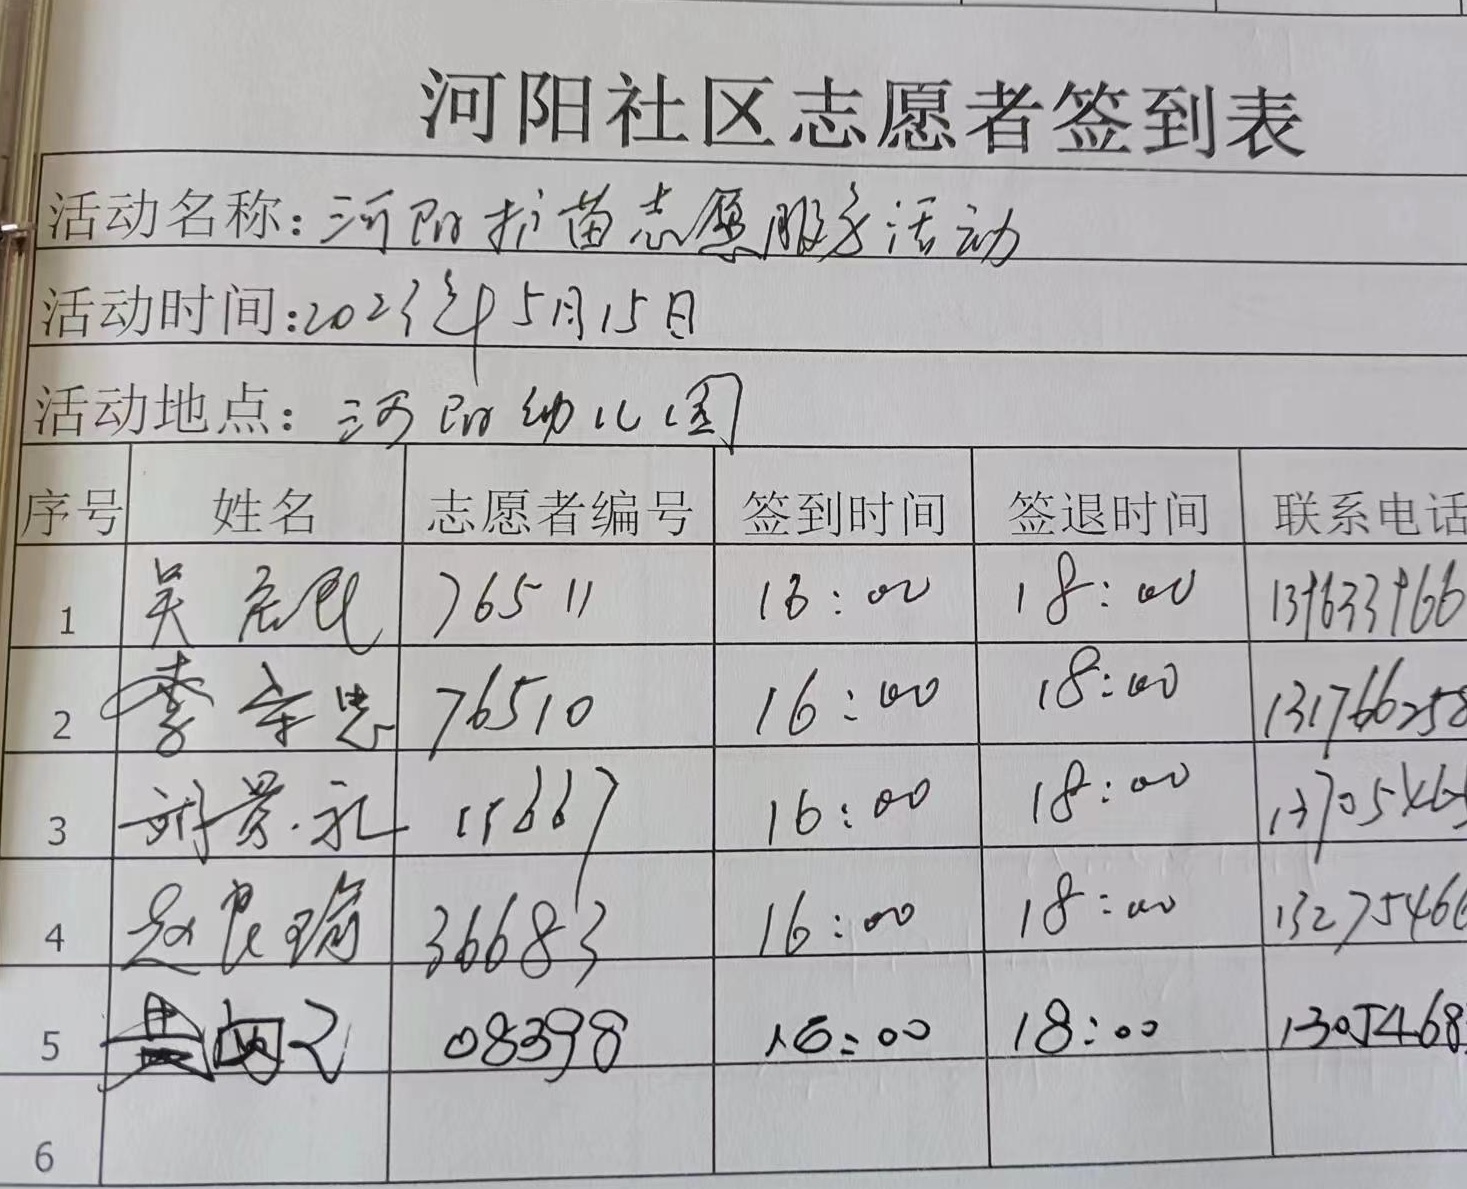 河阳社区志愿者签到表
活动名称：河阳护苗志愿服务活动
活动时间：2023年5月15日
活动地点：河阳幼儿园
序号 姓名 志愿者编号 签到时间 签退时间 联系电话
1 吴 76511 16:00 18:00
2 李守忠 76510 16:00 18:00 131766258
3 刘景礼 16:00 18:00
4 赵良瑜 36683 16:00 18:00 13275466
5 08398 16:00 18:00 1305468
6